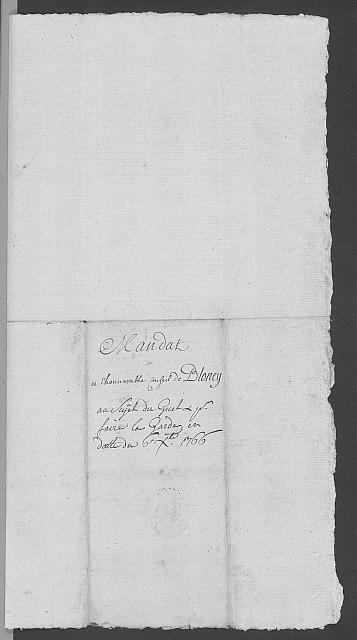 Mandat
a l'honnorable conseil de Bloney
au Sujet du Guet & pr.
faire la Garde, en
datte du 6e. Xbre. 1766